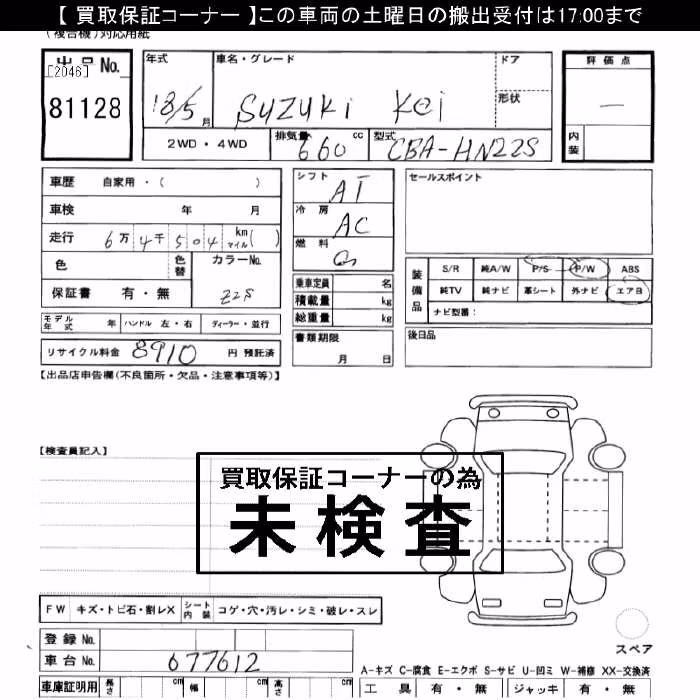 【 買取保証コーナー 】この車両の土曜日の搬出受付は17:00まで
(複合機)対応用紙
出品No.
[2046]
81128
年式
18/5月
車名・グレード
SUZUKI Kei
ドア
形状
評価点
—
内装
2WD・4WD
排気量 660 cc
型式 CBA-HN22S
車歴 自家用・( )
車検 年 月
走行 6万4千504 km マイル( )
色
色替
カラーNo.
Z2S
保証書 有・無
モデル年式 年 ハンドル 左・右 ディーラー・並行
リサイクル料金 8910 円 預託済
シフト AT
冷房 AC
燃料 G
乗車定員 名
積載量 kg
総重量 kg
書類期限
月 日
セールスポイント
装備品
S/R 純A/W P/S P/W ABS
純TV 純ナビ 革シート 外ナビ エアB
ナビ型番:
後日品
【出品店申告欄(不良箇所・欠品・注意事項等)】
【検査員記入】
買取保証コーナーの為
未検査
FW キズ・トビ石・割レX シート内装 コゲ・穴・汚レ・シミ・破レ・スレ
登録No.
車台No. 677612
スペア
A-キズ C-腐食 E-エクボ S-サビ U-凹ミ W-補修 XX-交換済
車庫証明用 長さ cm 幅 cm 高さ cm
工具 有・無 ジャッキ 有・無